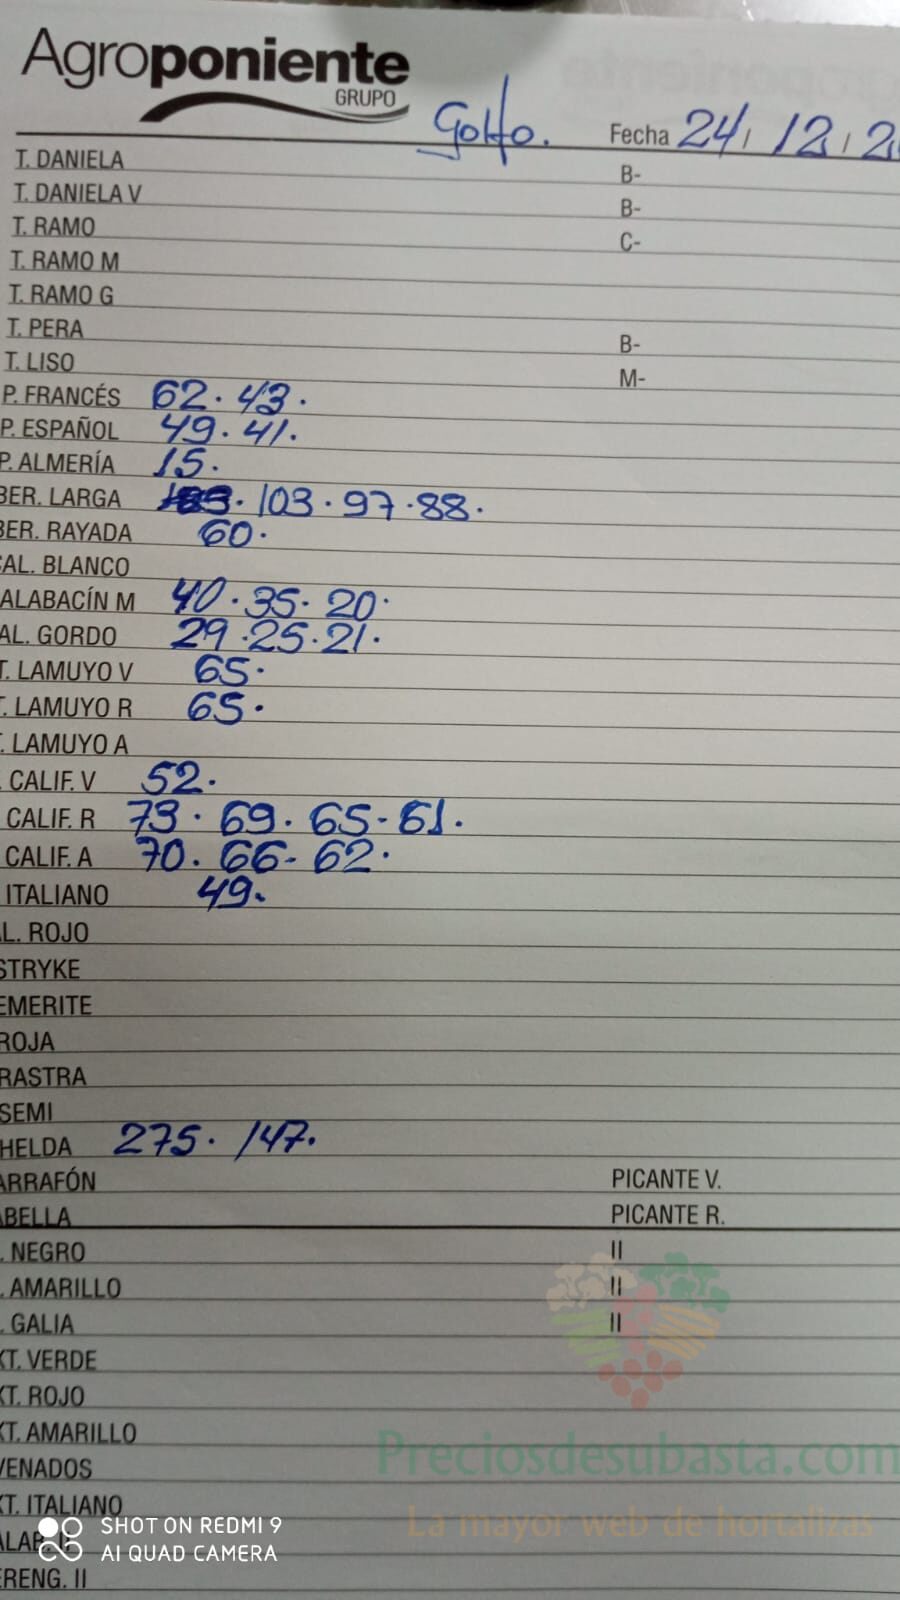 Agroponiente
GRUPO
Golfo. Fecha 24/12/2
T. DANELA B-
T. DANIELA V B-
T. RAMO C-
T. RAMO M
T. RAMO G
T. PERA B-
T. LISO M-
P. FRANCÉS 62. 43.
P. ESPAÑOL 49. 41.
P. ALMERÍA 15.
BER. LARGA 103. 97. 88.
BER. RAYADA 60.
CAL. BLANCO
ALABACÍN M 40. 35. 20.
AL. GORDO 29. 25. 21.
T. LAMUYO V 65.
T. LAMUYO R 65.
. LAMUYO A
. CALIF. V 52.
CALIF. R 73. 69. 65. 61.
CALIF. A 70. 66- 62.
ITALIANO 49.
L. ROJO
STRYKE
EMERITE
ROJA
RASTRA
SEMI
HELDA 275. 147.
ARRAFÓN PICANTE V.
ABELLA PICANTE R.
. NEGRO II
. AMARILLO II
. GALIA II
XT. VERDE
XT. ROJO
XT. AMARILLO
VENADOS
XT. ITALIANO
ALAB. II
ERENG. II
Preciosdesubasta.com
La mayor web de hortalizas
SHOT ON REDMI 9
AI QUAD CAMERA